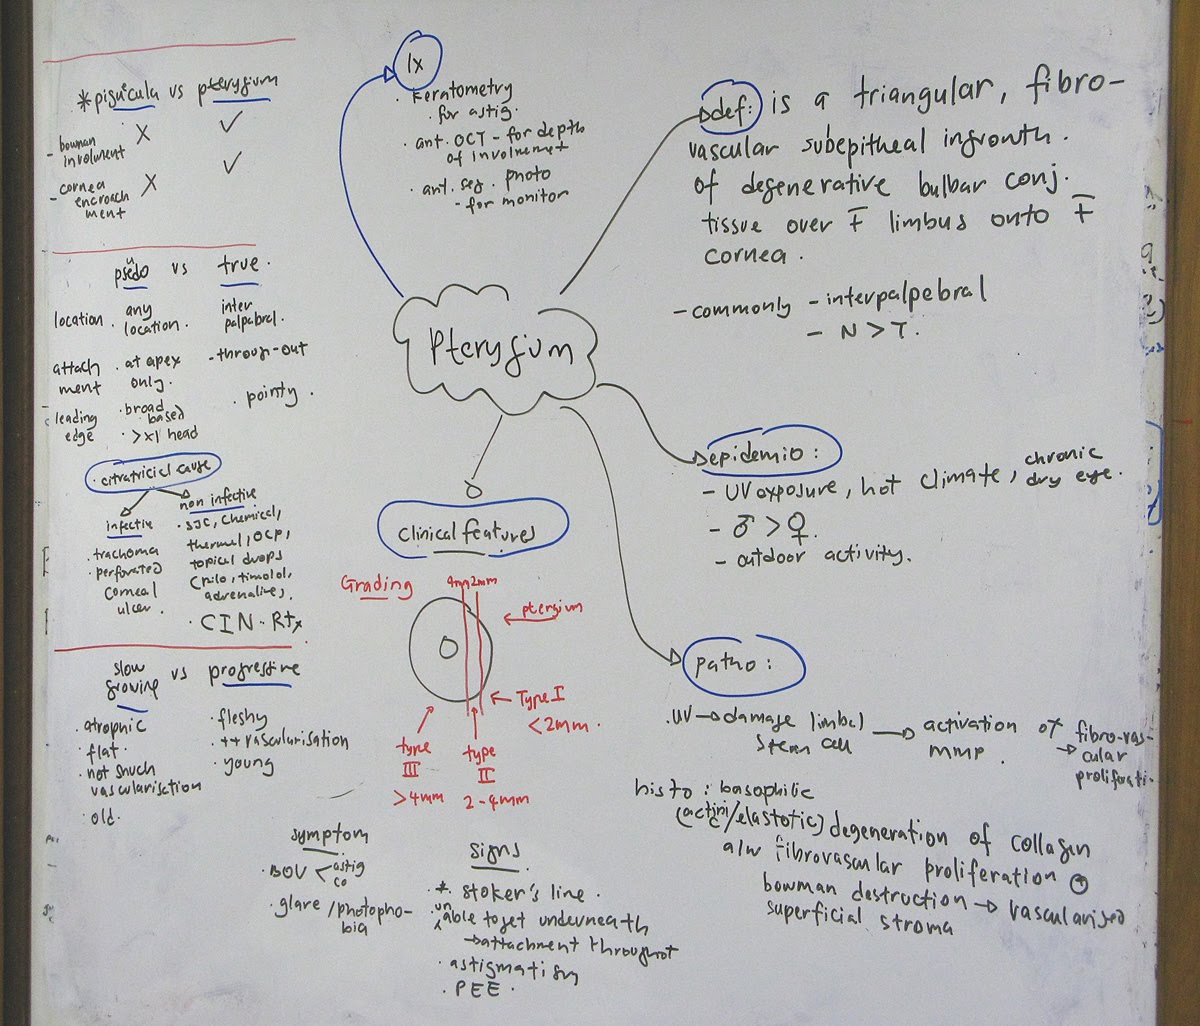 Pterygium
Ix
. Keratometry
. for astig.
. ant. OCT - for depth
of involvnemet
. ant. seg. photo
- for monitor
def: is a triangular, fibro-
vascular subepitheal ingrowth.
of degenerative bulbar conj.
tissue over T limbus onto T
cornea.
- commonly - interpalpebral
- N > T.
epidemio:
- UV exposure, hot climate, chronic
dry eye.
- ♂ > ♀.
- outdoor activity.
patho:
. UV → damage limbal → activation of → fibro-vas-
stem cell
MMP.
cular
proliferati.
histo: basophilic
(actinic/elastotic) degeneration of collagen
a/w fibrovascular proliferation
bowman destruction → vascularised
superficial stroma
* pigucula vs pterygium
- bowman
involument
X ✓
- cornea
encroach
ment
X ✓
psedo vs true.
location . any
location.
inter
palpabral.
attach
ment
. at apex
only.
- through-out
leading
edge
. broad
based
. >x1 head
. pointy.
. citratricial cause
infective
. trachoma
. perforated
corneal
ulcer.
non infective
. SJC, chemical,
thermel, OCP,
topical drops
(pilo, timolol,
adrenalines.
. CIN. Rtx
slow
growing
vs progressive
. atrophic
. flat.
. not snuch
vascularisction
. old.
. fleshy
. ++ vascularisation
. young
clinical features
Grading
4mm 2mm
← ptergium
← Type I
< 2mm.
type
III
> 4mm
type
II
2-4mm
symptom
. BOV < astig
co
. glare / photopho-
bia
signs
. * stoker's line.
. un able to get underneath
→ attachment throughot
. astigmatism
. PEE.